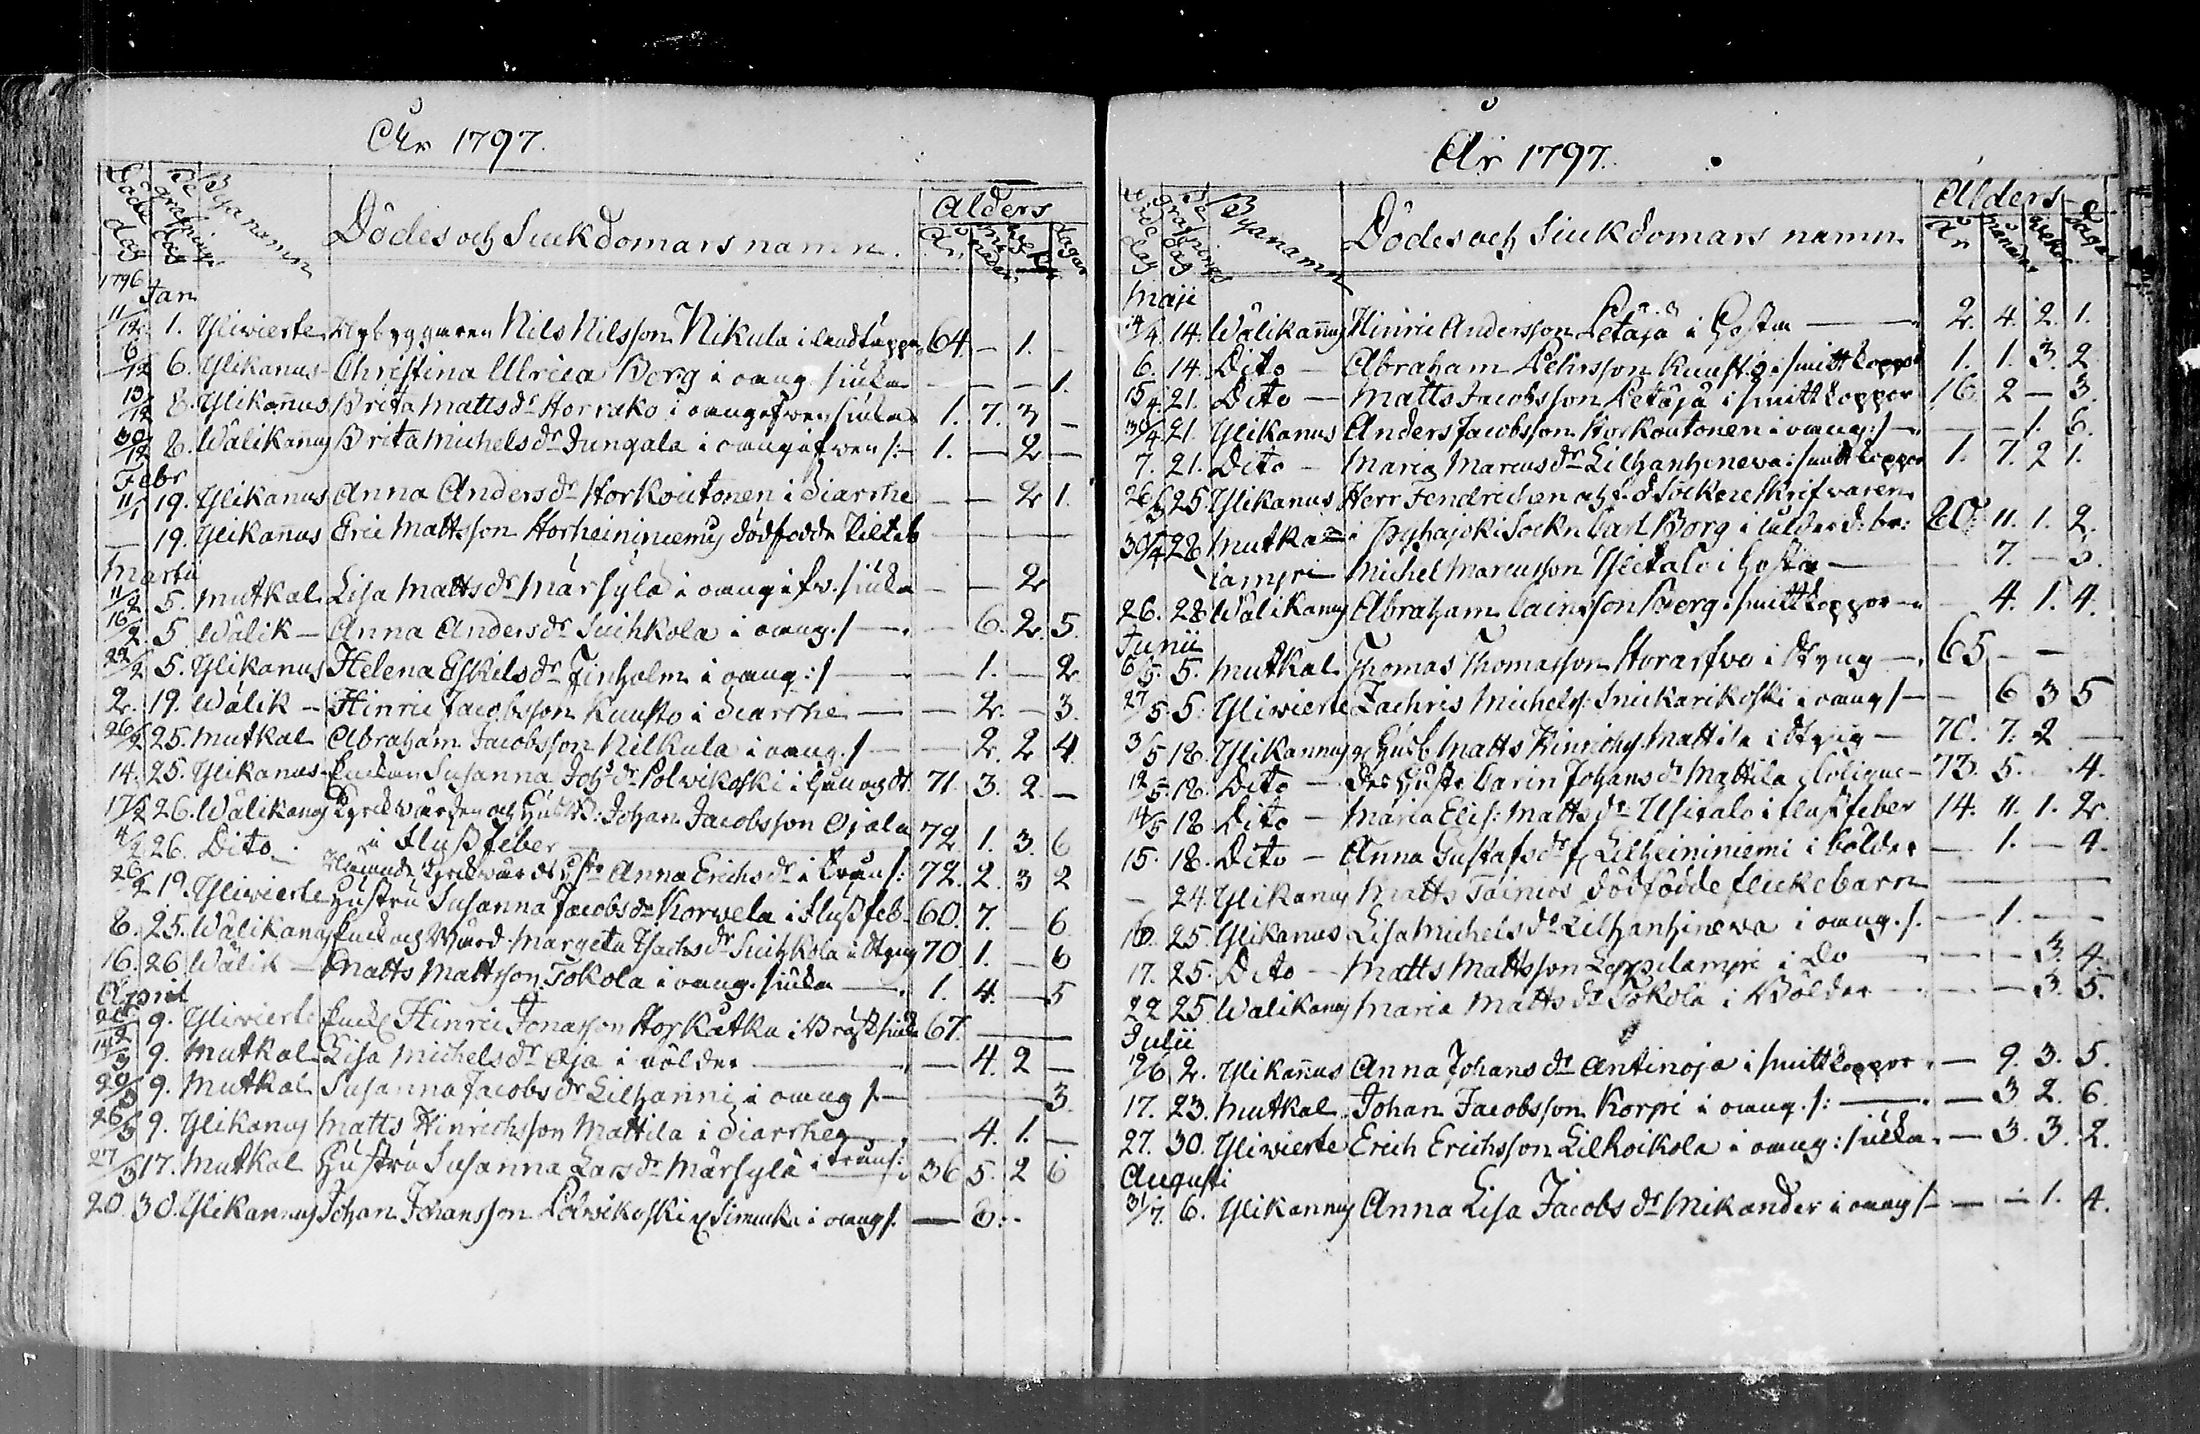 År 1797.
Döde dag Begrafnings dag Byanamn Dödes och Siukdomars namn. Alders
År. månader wekor dagar
1796
Jan
11/12. 1. Yliwierke Nybyggaren Nils Nilsson Nikula i 64. — 1. —
6/12 6. Ylikanus Christina Ulrica Borg i oang. siuka — — — 1.
13/12 8. Ylikanus Brita Matts dr Horrako i oangifwen siuka 1. 7. 3 —
30/12 8. Wälikanus Brita Michels dr Jungala i oangifwen s:— 1. — 2 —
Febr
11/1 19. Ylikanus Anna Anders dr Horkoutonen i diarrhe — — 2 1.
— 19. Ylikanus Eric Mattsson Storheininiemis dödfödde — — —
Martii
11/2. 5. Mutkal. Lisa Matts dr Märsylä i oangifw. siuka — — 2
16/2. 5 Wälik — Anna Anders dr Suihkola i oang. s —. — 6. 2. 5.
22/2 5. Ylikanus Helena Eskils dr Finholm i oang:s — — 1. — 2
2. 19. Wälik — Hinric Jacobsson Kuusto i diarrhe — — 2. — 3.
26/2 25. Mutkal Abraham Jacobsson Nilkula i oang. s — — 2. 2 4.
14. 25. Ylikanus Enkan Susanna Joh:s dr Polwikoski i 71. 3. 2. —
17/2 26. Wälikanus Kyrckwärden och Johan Jacobsson Ojala
4/2 26. Dito — i Flussfeber 72 1. 3. 6
26/2 19. Yliwierke Anna Erichs dr i 72. 2. 3 2
Hustru Susanna Jacobs dr Korwela i Flussfeb. 60. 7. — 6
8. 25. Wälikanus Margeta Isachs dr Suihkola i 70 1. — 6
16. 26 Wälik — Matts Mattsson Tokola i oang. siuka —. 1. 4. — 5
April
9. Yliwierke Hinric Jonasson Storkatka i Bröstsiuka 67. —
14/3 9. Mutkal Lisa Michels dr Oja i bölder — — 4. 2 —
20/3 9. Mutkal Susanna Jacobs dr Lilhanni i oang s — — 3.
26/3 9. Ylikanus Matts Hinrichsson Mattila i diarrhe — — 4. 1. —
27/3 17. Mutkal Hustru Susanna Lars dr Märsylä i 36 5. 2 6
20. 30. Ylikannus Johan Johansson Polwikoski i oang s. — 8.
År 1797.
Döde dag Begrafnings dag Byanamn Dödes och Siukdomars namn Alders
År månader wekor dagar
Maji
4/4 14. Wälikannus Hinric Andersson Petäjä i Hosta — 2. 4. 2. 1.
6. 14. Dito — Abraham Kuusto i smittkoppor 1. 1. 3. 2
15/4. 21. Dito — Matts Jacobsson Petäjä i smittkoppor. 16. 2 — 3.
30/4 21. Ylikanus Anders Jacobsson Horkoutonen i oang: s — — 1. 6.
7. 21. Dito — Maria Marcus dr Lilhanhinewa i smittkoppor 1. 7. 2 1.
26/3 25. Ylikanus Herr Fendrichen och
30/4 28 Mutka — i Pyhajoki Sockn Carl Borg i 80. 11. 1. 2.
lampi — Michel Marcusson Ylitalo i Hosta — — 7. — 3.
26. 28 Wälikanus Abraham Berg i smittkoppor — — 4. 1. 4.
Junii
6/5. 5. Mutkal Thomas Thomasson Storarfwo i Styng —. 65 — —
27/5 5. Yliwierke Zachris Michels: Snickarikoski i oang s — — 6 3 5
3/5 18. Ylikannus Matts Hinrichs Mattila i Styng — 70. 7. 2 —
12/5. 18. Dito — Carin Johans dr Mattila i Colique — 73. 5. — 4.
14/5 18 Dito — Maria Elis: Matts dr Ylitalo i flussfeber 14. 11. 1. 2.
15. 18. Dito — Anna Gustafs dr Lilheininiemi i bölder — 1. — 4.
— 24. Ylikanus Matts Tainios dödfödde flickebarn —
16. 25. Ylikanus Lisa Michels dr Lilhanhinewa i oang. s. — 1. — —
17. 25. Dito — Matts Mattsson Leppilampi i Do — — — 3. 4.
22 25. Walikanus Maria Matts dr Tokola i Bölder — — 3. 5.
Julii
19/6 2. Ylikanus Anna Johans dr Antinoja i smittkoppor. — 9. 3. 5.
17. 23. Mutkal Johan Jacobsson Korpi i oang. s: — — 3 2. 6.
27. 30. Yliwierke Erich Erichsson Lilkoikola i oang: siuka. — 3. 3. 2.
Augusti
31/7. 6. Ylikannus Anna Lisa Jacobs dr Mikander i oang s — — — 1. 4.